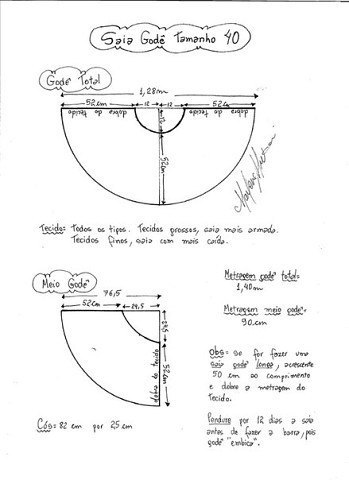 Saia Godê Tamanho 40
Godê Total
1,28m
52cm 12 12 52cm
dobra do tecido dobra do tecido
12
52cm
Tecido= Todos os tipos. Tecidos grossos, saia mais armada.
Tecidos finos, saia com mais caída.
Meio Godê
76,5
52cm 24,5
24,5
52cm
dobra do tecido
Cós= 82 cm por 25cm
Metragem godê total=
1,40m
Metragem meio godê=
90cm
Obs= se for fazer uma
saia godê longa, acrescente
50 cm ao comprimento
e dobre a metragem do
tecido.
Pendure por 12 dias a saia
antes de fazer a barra, pois
godê "embica".